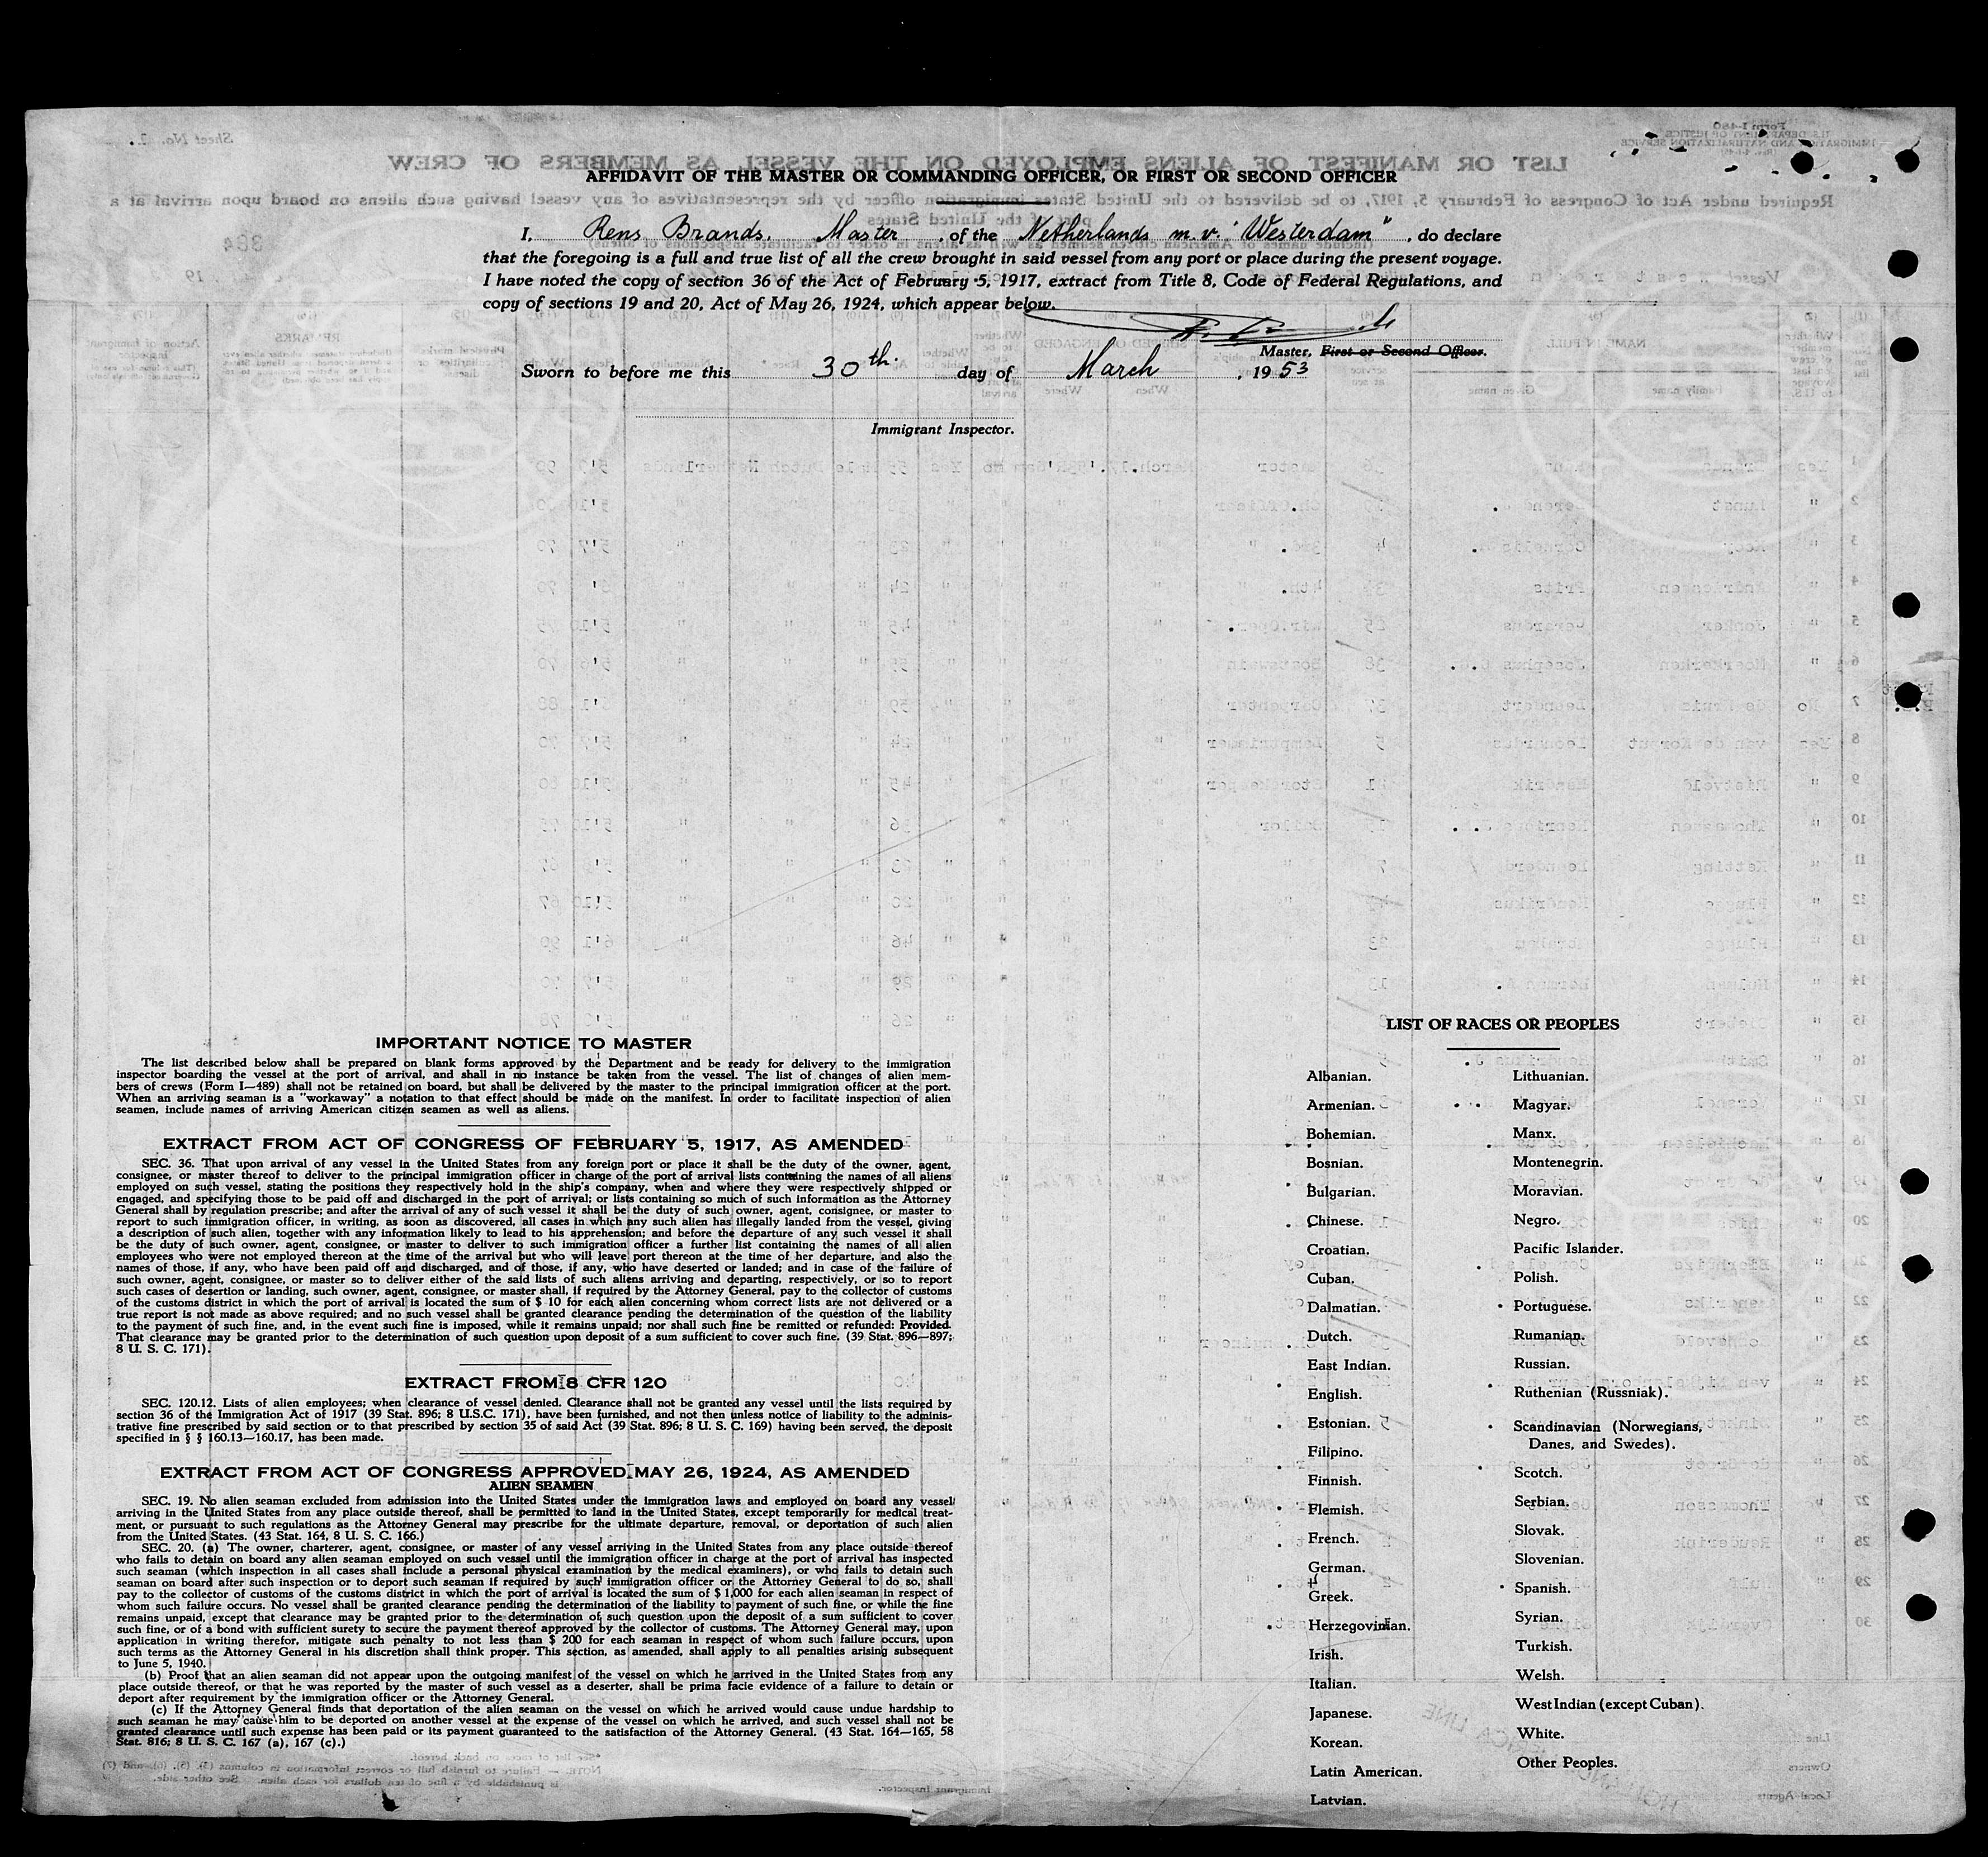 AFFIDAVIT OF THE MASTER OR COMMANDING OFFICER, OR FIRST OR SECOND OFFICER
I, Rens Brands, Master, of the Netherlands m.v. "Westerdam", do declare
that the foregoing is a full and true list of all the crew brought in said vessel from any port or place during the present voyage.
I have noted the copy of section 36 of the Act of February 5, 1917, extract from Title 8, Code of Federal Regulations, and
copy of sections 19 and 20, Act of May 26, 1924, which appear below.
Master, First or Second Officer.
Sworn to before me this 30th. day of March, 1953
Immigrant Inspector.
IMPORTANT NOTICE TO MASTER
The list described below shall be prepared on blank forms approved by the Department and be ready for delivery to the immigration
inspector boarding the vessel at the port of arrival, and shall in no instance be taken from the vessel. The list of changes of alien mem-
bers of crews (Form I—489) shall not be retained on board, but shall be delivered by the master to the principal immigration officer at the port.
When an arriving seaman is a "workaway" a notation to that effect should be made on the manifest. In order to facilitate inspection of alien
seamen, include names of arriving American citizen seamen as well as aliens.
EXTRACT FROM ACT OF CONGRESS OF FEBRUARY 5, 1917, AS AMENDED
SEC. 36. That upon arrival of any vessel in the United States from any foreign port or place it shall be the duty of the owner, agent,
consignee, or master thereof to deliver to the principal immigration officer in charge of the port of arrival lists containing the names of all aliens
employed on such vessel, stating the positions they respectively hold in the ship's company, when and where they were respectively shipped or
engaged, and specifying those to be paid off and discharged in the port of arrival; or lists containing so much of such information as the Attorney
General shall by regulation prescribe; and after the arrival of any of such vessel it shall be the duty of such owner, agent, consignee, or master to
report to such immigration officer, in writing, as soon as discovered, all cases in which any such alien has illegally landed from the vessel, giving
a description of such alien, together with any information likely to lead to his apprehension; and before the departure of any such vessel it shall
be the duty of such owner, agent, consignee, or master to deliver to such immigration officer a further list containing the names of all alien
employees who were not employed thereon at the time of the arrival but who will leave port thereon at the time of her departure, and also the
names of those, if any, who have been paid off and discharged, and of those, if any, who have deserted or landed; and in case of the failure of
such owner, agent, consignee, or master so to deliver either of the said lists of such aliens arriving and departing, respectively, or so to report
such cases of desertion or landing, such owner, agent, consignee, or master shall, if required by the Attorney General, pay to the collector of customs
of the customs district in which the port of arrival is located the sum of $ 10 for each alien concerning whom correct lists are not delivered or a
true report is not made as above required; and no such vessel shall be granted clearance pending the determination of the question of the liability
to the payment of such fine, and, in the event such fine is imposed, while it remains unpaid; nor shall such fine be remitted or refunded: Provided.
That clearance may be granted prior to the determination of such question upon deposit of a sum sufficient to cover such fine. (39 Stat. 896—897;
8 U. S. C. 171).
EXTRACT FROM 8 CFR 120
SEC. 120.12. Lists of alien employees; when clearance of vessel denied. Clearance shall not be granted any vessel until the lists required by
section 36 of the Immigration Act of 1917 (39 Stat. 896; 8 U.S.C. 171), have been furnished, and not then unless notice of liability to the adminis-
trative fine prescribed by said section or to that prescribed by section 35 of said Act (39 Stat. 896; 8 U. S. C. 169) having been served, the deposit
specified in § § 160.13—160.17, has been made.
EXTRACT FROM ACT OF CONGRESS APPROVED MAY 26, 1924, AS AMENDED
ALIEN SEAMEN
SEC. 19. No alien seaman excluded from admission into the United States under the immigration laws and employed on board any vessel
arriving in the United States from any place outside thereof, shall be permittted to land in the United States, except temporarily for medical treat-
ment, or pursuant to such regulations as the Attorney General may prescribe for the ultimate departure, removal, or deportation of such alien
from the United States. (43 Stat. 164, 8 U. S. C. 166.)
SEC. 20. (a) The owner, charterer, agent, consignee, or master of any vessel arriving in the United States from any place outside thereof
who fails to detain on board any alien seaman employed on such vessel until the immigration officer in charge at the port of arrival has inspected
such seaman (which inspection in all cases shall include a personal physical examination by the medical examiners), or who fails to detain such
seaman on board after such inspection or to deport such seaman if required by such immigration officer or the Attorney General to do so, shall
pay to the collector of customs of the customs district in which the port of arrival is located the sum of $ 1,000 for each alien seaman in respect of
whom such failure occurs. No vessel shall be granted clearance pending the determination of the liability to payment of such fine, or while the fine
remains unpaid, except that clearance may be granted prior to the determination of such question upon the deposit of a sum sufficient to cover
such fine, or of a bond with sufficient surety to secure the payment thereof approved by the collector of customs. The Attorney General may, upon
application in writing therefor, mitigate such penalty to not less than $ 200 for each seaman in respect of whom such failure occurs, upon
such terms as the Attorney General in his discretion shall think proper. This section, as amended, shall apply to all penalties arising subsequent
to June 5, 1940.
(b) Proof that an alien seaman did not appear upon the outgoing manifest of the vessel on which he arrived in the United States from any
place outside thereof, or that he was reported by the master of such vessel as a deserter, shall be prima facie evidence of a failure to detain or
deport after requirement by the immigration officer or the Attorney General.
(c) If the Attorney General finds that deportation of the alien seaman on the vessel on which he arrived would cause undue hardship to
such seaman he may cause him to be deported on another vessel at the expense of the vessel on which he arrived, and such vessel shall not be
granted clearance until such expense has been paid or its payment guaranteed to the satisfaction of the Attorney General. (43 Stat. 164—165, 58
Stat. 816; 8 U. S. C. 167 (a), 167 (c).)
LIST OF RACES OR PEOPLES
Albanian.
Armenian.
Bohemian.
Bosnian.
Bulgarian.
Chinese.
Croatian.
Cuban.
Dalmatian.
Dutch.
East Indian.
English.
Estonian.
Filipino.
Finnish.
Flemish.
French.
German.
Greek.
Herzegovinian.
Irish.
Italian.
Japanese.
Korean.
Latin American.
Latvian.
Lithuanian.
Magyar.
Manx.
Montenegrin.
Moravian.
Negro.
Pacific Islander.
Polish.
Portuguese.
Rumanian.
Russian.
Ruthenian (Russniak).
Scandinavian (Norwegians,
Danes, and Swedes).
Scotch.
Serbian.
Slovak.
Slovenian.
Spanish.
Syrian.
Turkish.
Welsh.
West Indian (except Cuban).
White.
Other Peoples.